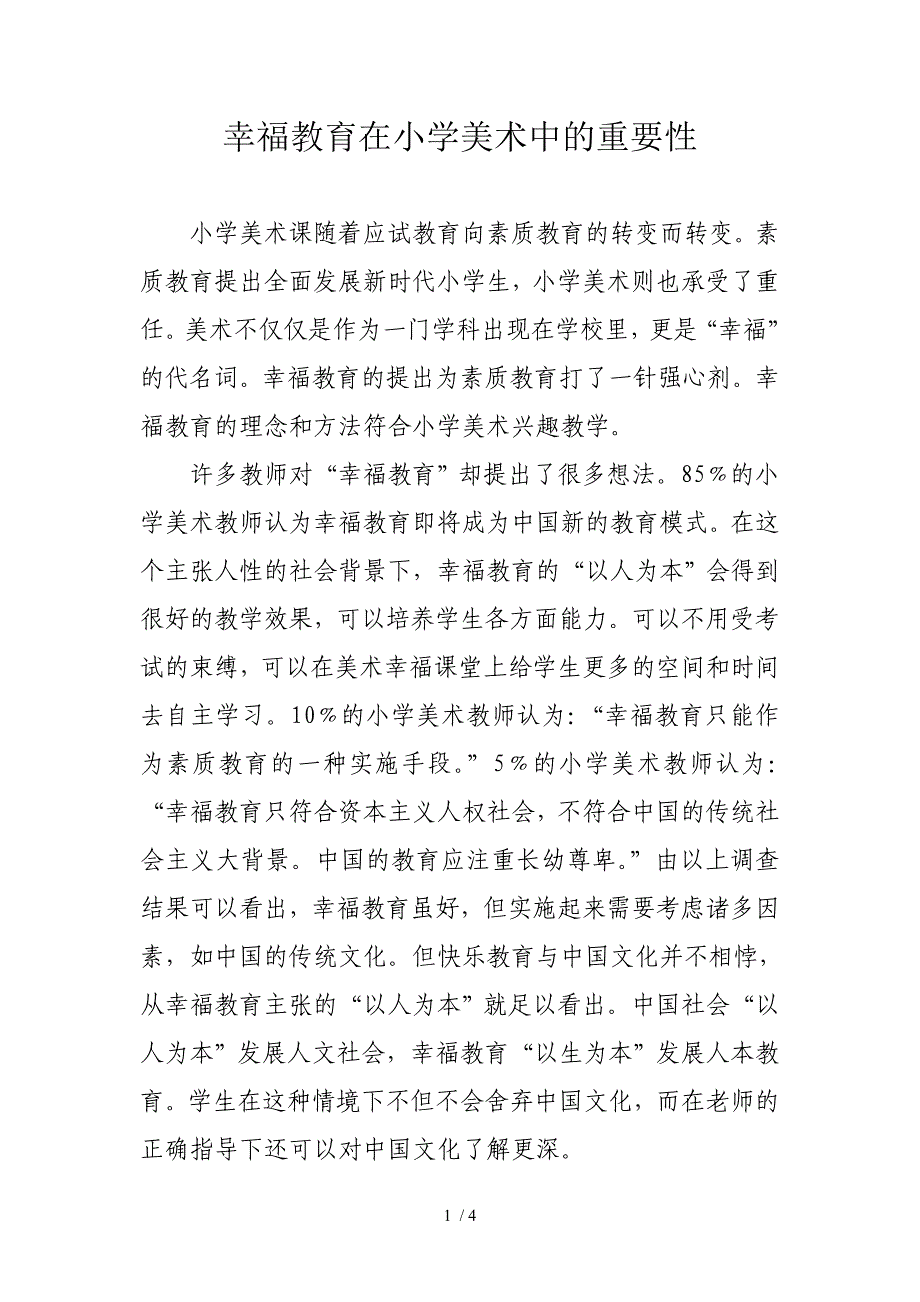 幸福教育在小学美术中的重要性
小学美术课随着应试教育向素质教育的转变而转变。素
质教育提出全面发展新时代小学生，小学美术则也承受了重
任。美术不仅仅是作为一门学科出现在学校里，更是“幸福”
的代名词。幸福教育的提出为素质教育打了一针强心剂。幸
福教育的理念和方法符合小学美术兴趣教学。
许多教师对“幸福教育”却提出了很多想法。85％的小
学美术教师认为幸福教育即将成为中国新的教育模式。在这
个主张人性的社会背景下，幸福教育的“以人为本”会得到
很好的教学效果，可以培养学生各方面能力。可以不用受考
试的束缚，可以在美术幸福课堂上给学生更多的空间和时间
去自主学习。10％的小学美术教师认为：“幸福教育只能作
为素质教育的一种实施手段。”5％的小学美术教师认为：
“幸福教育只符合资本主义人权社会，不符合中国的传统社
会主义大背景。中国的教育应注重长幼尊卑。”由以上调查
结果可以看出，幸福教育虽好，但实施起来需要考虑诸多因
素，如中国的传统文化。但快乐教育与中国文化并不相悖，
从幸福教育主张的“以人为本”就足以看出。中国社会“以
人为本”发展人文社会，幸福教育“以生为本”发展人本教
育。学生在这种情境下不但不会舍弃中国文化，而在老师的
正确指导下还可以对中国文化了解更深。
1 / 4